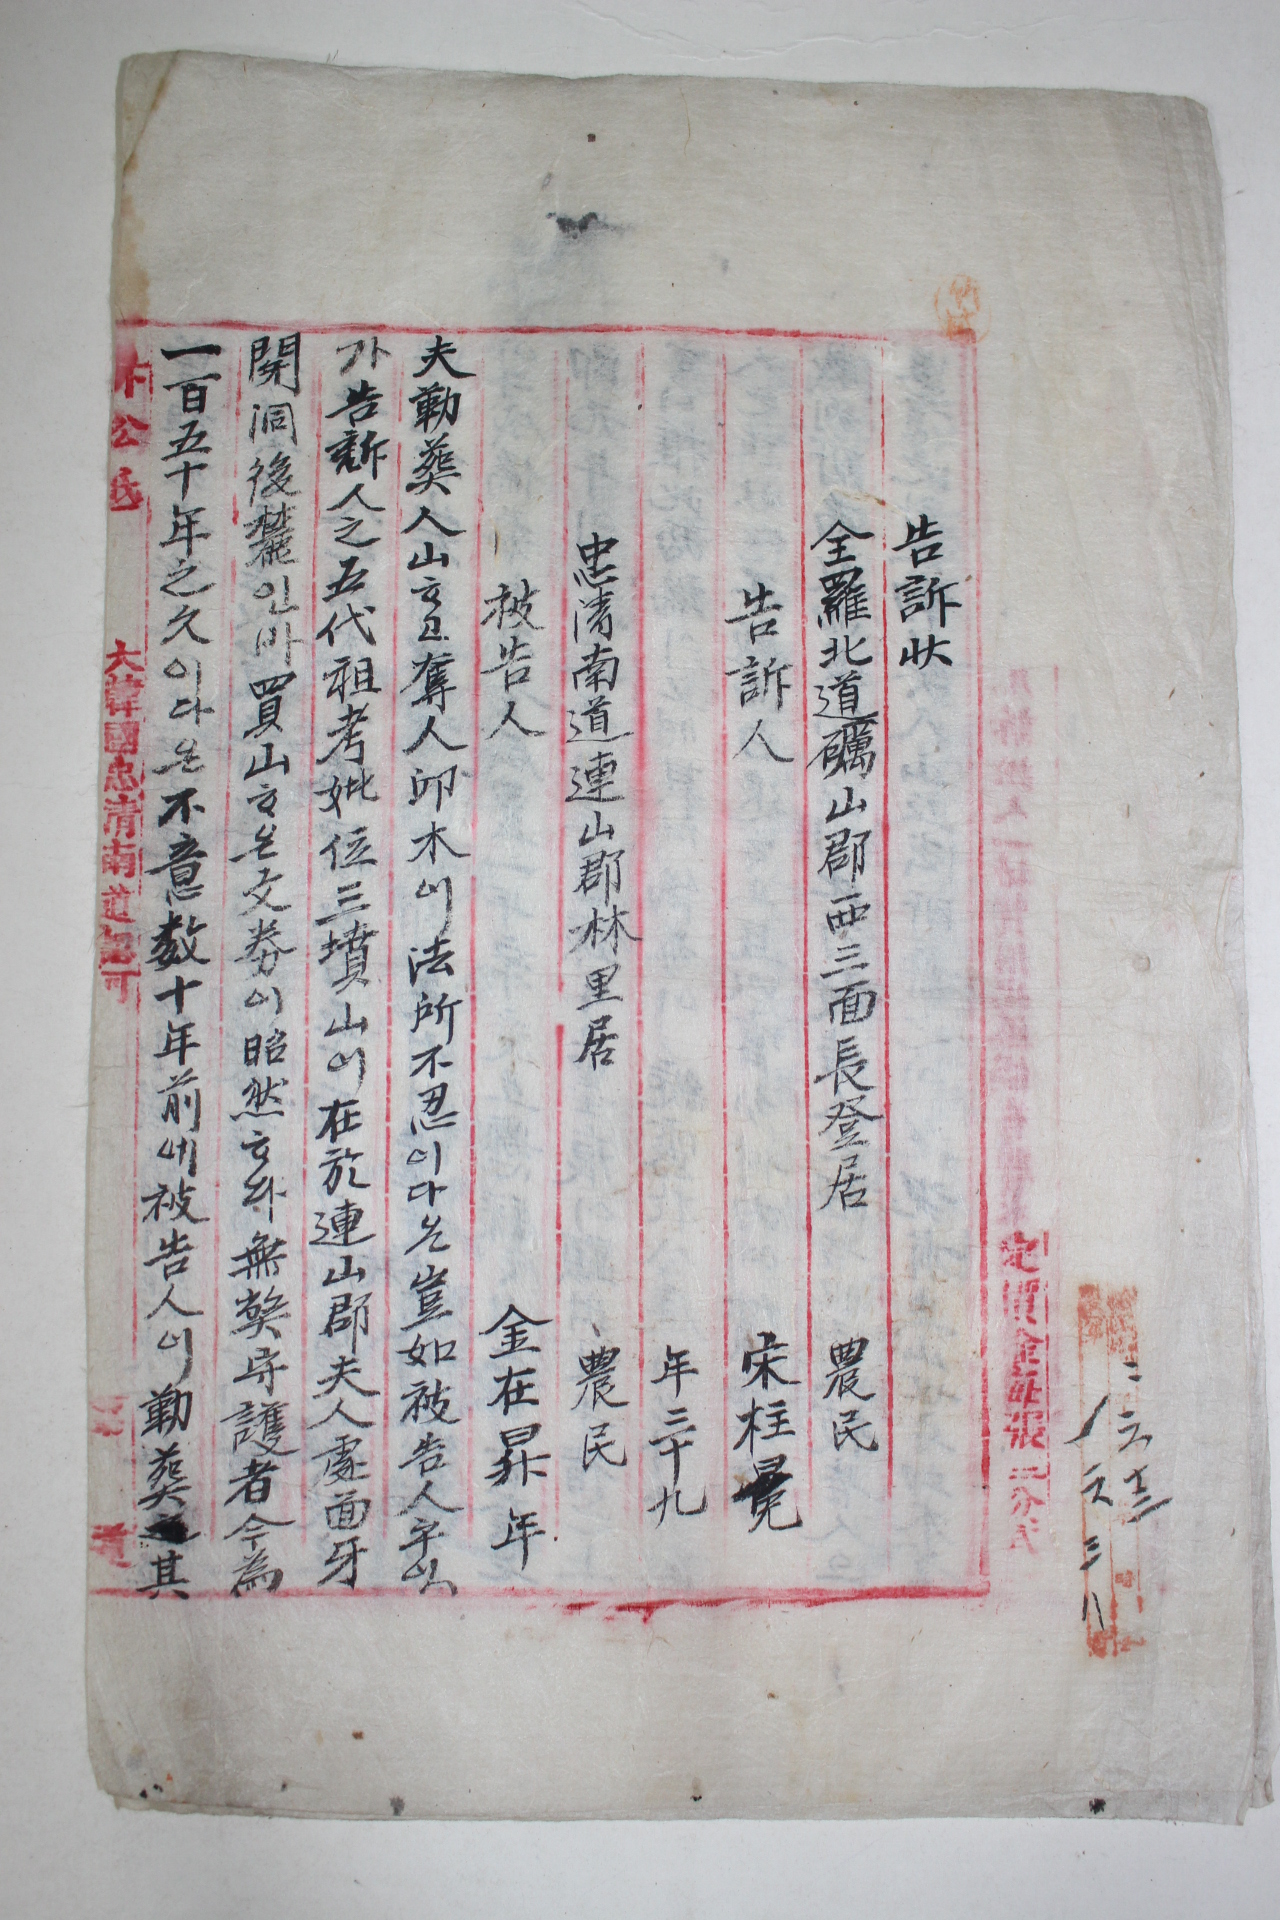 告訴狀
全羅北道礪山郡西三面長登居 農民
告訴人 宋柱冕
年三十九
忠淸南道連山郡林里居 農民
被告人 金在昇 年
夫勒葬人山ᄒᆞ고奪人邱木이法所不忍이다온豈如被告人乎잇
가告訴人之五代祖考妣位三墳山이在於連山郡夫人處面牙
開洞後麓인바買山ᄒᆞ온文券이昭然ᄒᆞ와無獘守護者今為
一百五十年之久이다온不意數十年前에被告人이勒葬之其
公紙
大韓國忠清南道認可
定價金 張